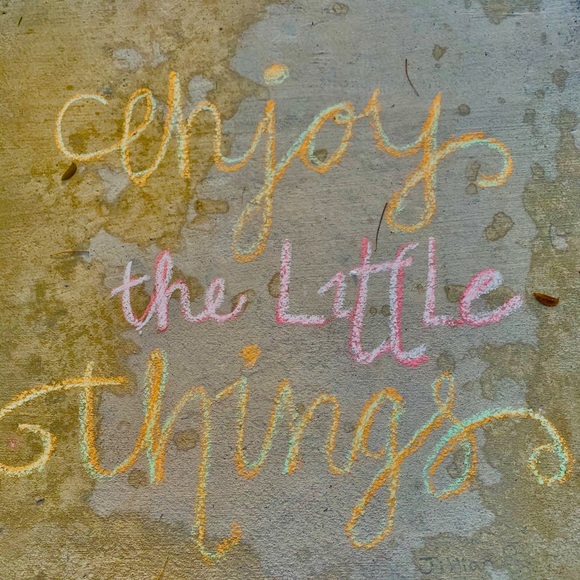 enjoy
the Little
things